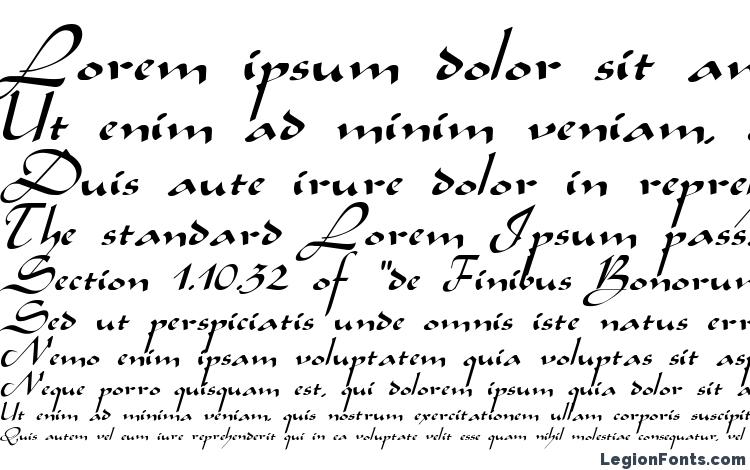 Lorem ipsum dolor sit am
Ut enim ad minim veniam,
Duis aute irure dolor in repreh
The standard Lorem Ipsum pass
Section 1.10.32 of "de Finibus Bonorum
Sed ut perspiciatis unde omnis iste natus err
Nemo enim ipsam voluptatem quia voluptas sit asp
Neque porro quisquam est, qui dolorem ipsum quia dolor sit a
Ut enim ad minima veniam, quis nostrum exercitationem ullam corporis suscipit
Quis autem vel eum iure reprehenderit qui in ea voluptate velit esse quam nihil molestiae consequatur, vel
LegionFonts.com